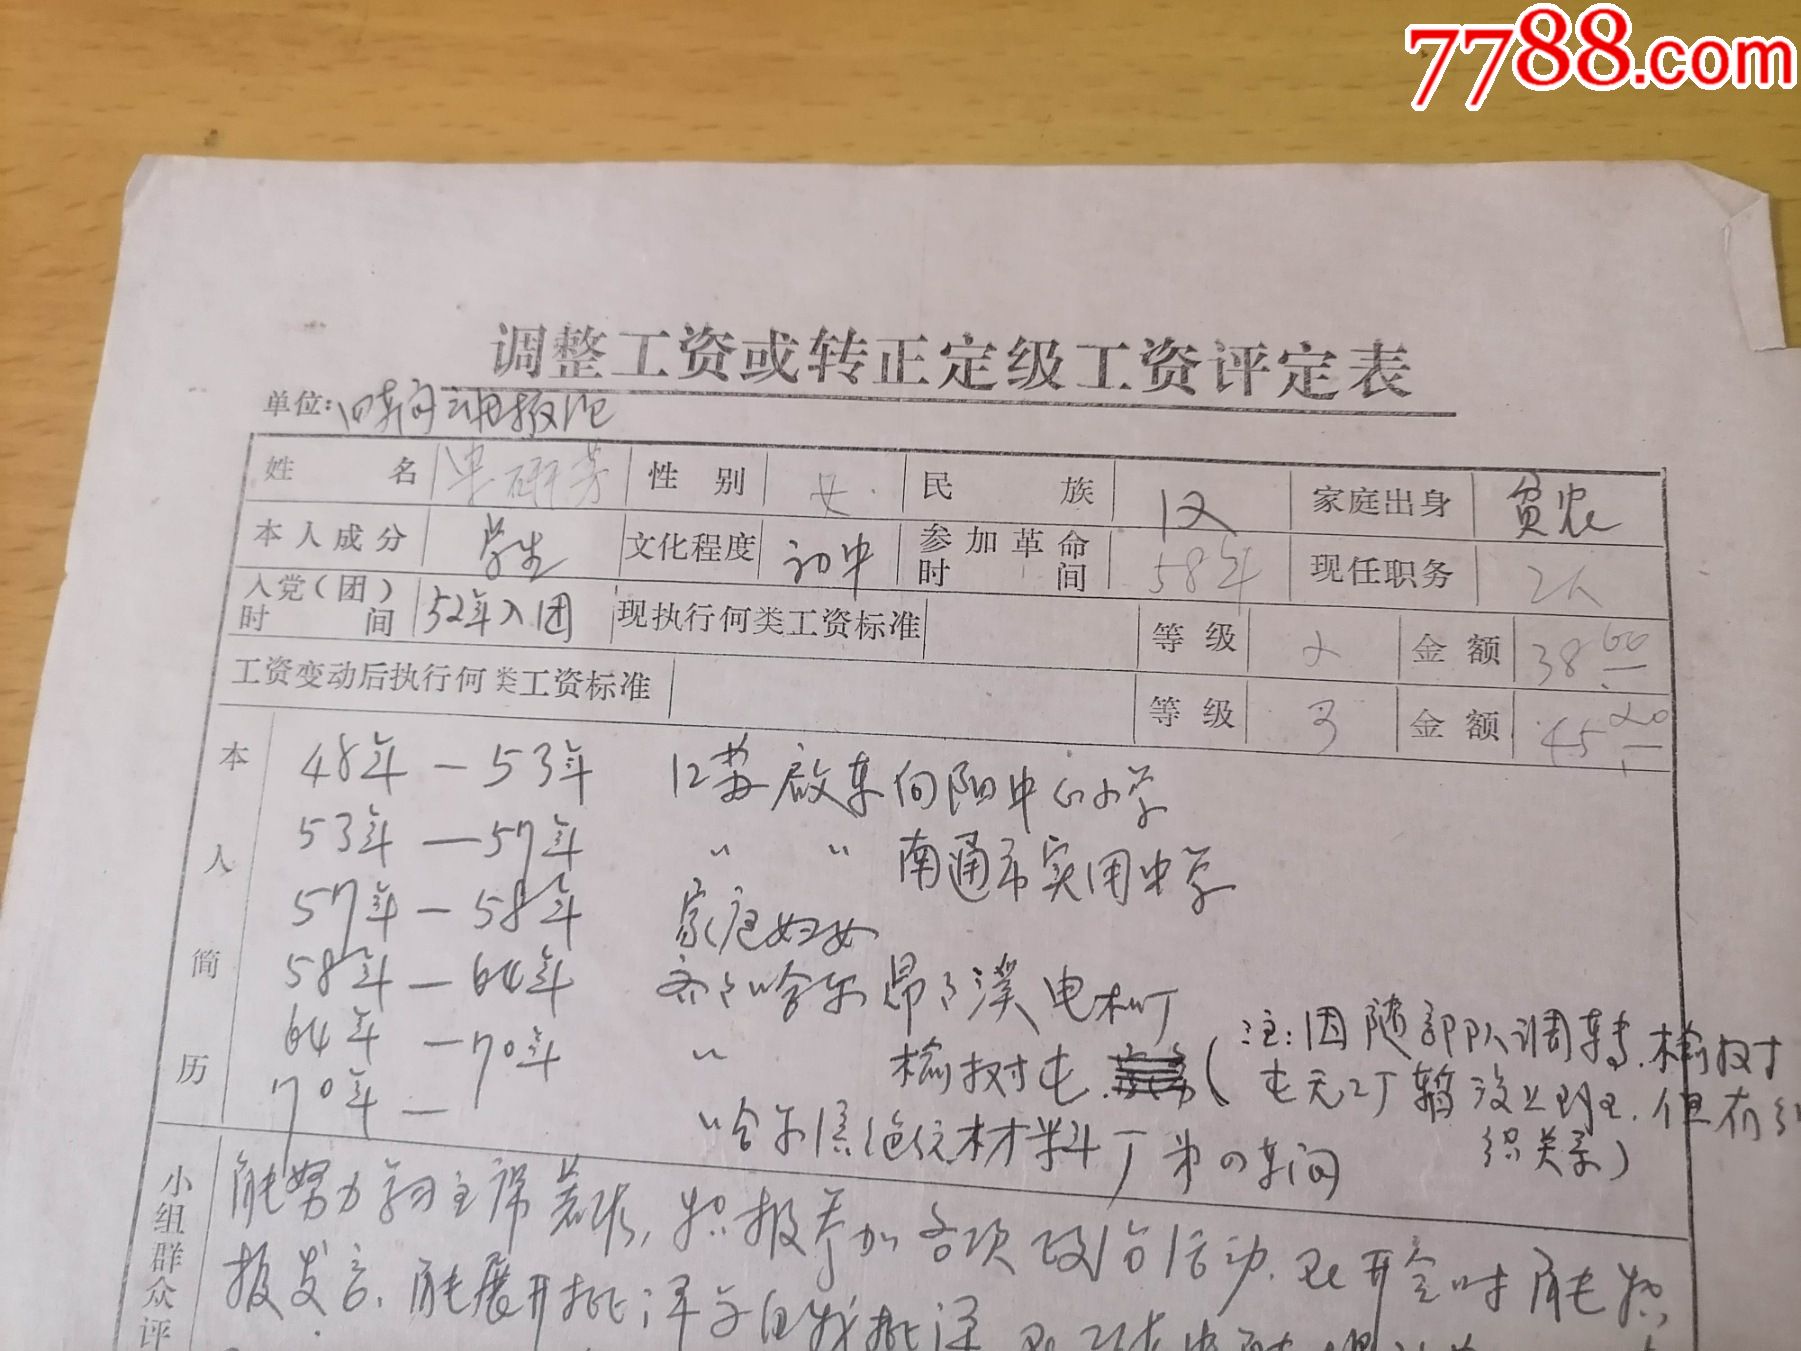 7788.com
调整工资或转正定级工资评定表
单位: 四车间
姓名 性别 女 民族 汉 家庭出身 贫农
本人成分 学生 文化程度 初中 参加革命时间 58年 现任职务 工人
入党(团)时间 52年入团 现执行何类工资标准 等级 2 金额 38 60
工资变动后执行何类工资标准 等级 3 金额 45 20
本人简历
48年—53年 江苏启东向阳中心小学
53年—57年 〃 〃 南通市实用中学
57年—58年 家庭妇女
58年—64年 齐齐哈尔昂昂溪电机厂
64年—70年 〃 榆树屯 (注:因随部队调转.榆树
屯无工厂暂没上班.但有组
织关系)
70年— 〃哈尔滨绝缘材料厂第四车间
小组群众评
能努力学习主席著作,积极参加各项政治活动.在开会时能积
极发言.能展开批评与自我批评